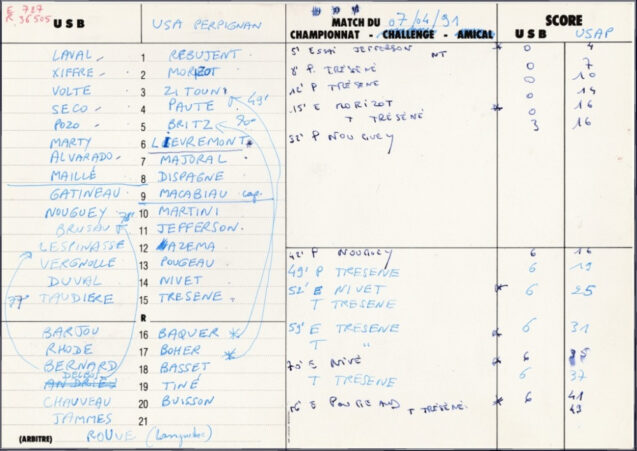 E 727
R. 36505
U S B
USA PERPIGNAN
MATCH DU 07/04/91
CHAMPIONNAT - CHALLENGE - AMICAL
SCORE
U S B USAP
LAVAL 1 REBUJENT
XIFFRE 2 MORIZOT
VOLTE 3 ZITOUNI
SECO 4 PAUTE 49'
POZO 5 BRITZ
MARTY 6 LIEVREMONT
ALVARADO 7 MAJORAL
MAILLÉ 8 DISPAGNE
GATINEAU 9 MACABIAU cap.
NOUGUEY 10 MARTINI
BRUSAU 11 JEFFERSON
LESPINASSE 12 AZEMA
VERGNOLLE 13 POUGEAU
DUVAL 14 NIVET
TAUDIERE 15 TRESENE
R
BARJOU 16 BAQUER
RHODE 17 BOHER
BERNARD 18 BASSET
19 TINÉ
CHAUVEAU 20 BUISSON
JAMMES 21
(ARBITRE) ROUVE
5' ESSAI JEFFERSON NT 0 4
8' P. TRÉSÉNÉ 0 7
12' P TRESENE 0 10
15' E MORIZOT 0 14
T TRÉSÉNÉ 0 16
32' P NOUGUEY 3 16
42' P NOUGUEY 6 16
49' P TRESENE 6 19
52' E NIVET 6 25
T TRESENE
59' E TRESENE 6 31
T "
70' E NIVÉ 6 35
T TRESENE 6 37
E T TRÉSÉNÉ 6 41
43